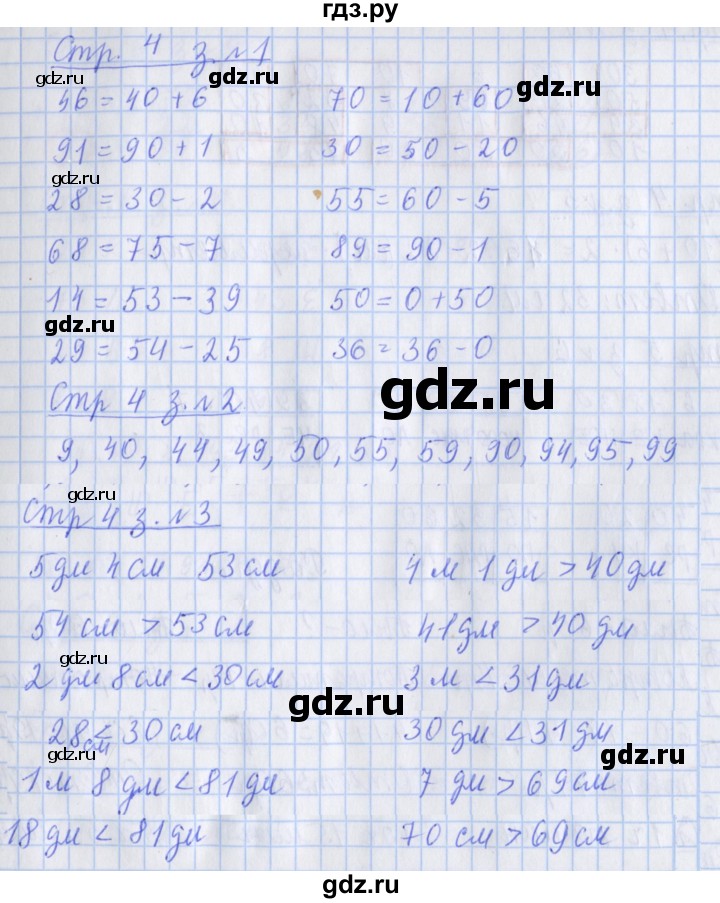 гдз.ру
Стр. 4 з. №1
gdz.ru gdz.ru
46 = 40 + 6 70 = 10 + 60
gdz.ru
91 = 90 + 1 30 = 50 - 20
gdz.ru
28 = 30 - 2 55 = 60 - 5
68 = 75 - 7 89 = 90 - 1
14 = 53 - 39 50 = 0 + 50
gdz.ru
29 = 54 - 25 36 = 36 - 0
Стр 4 з. №2
gdz.ru
9, 40, 44, 49, 50, 55, 59, 90, 94, 95, 99
gdz.ru
Стр 4 з. №3
5 дм 4 см 53 см 4 м 1 дм > 40 дм
54 см > 53 см 41 дм > 40 дм
gdz.ru
2 дм 8 см < 30 см 3 м < 31 дм
gdz.ru
28 см < 30 см 30 дм < 31 дм
gdz.ru gdz.ru
1 м 8 дм < 81 дм 7 дм > 69 см
18 дм < 81 дм 70 см > 69 см
gdz.ru